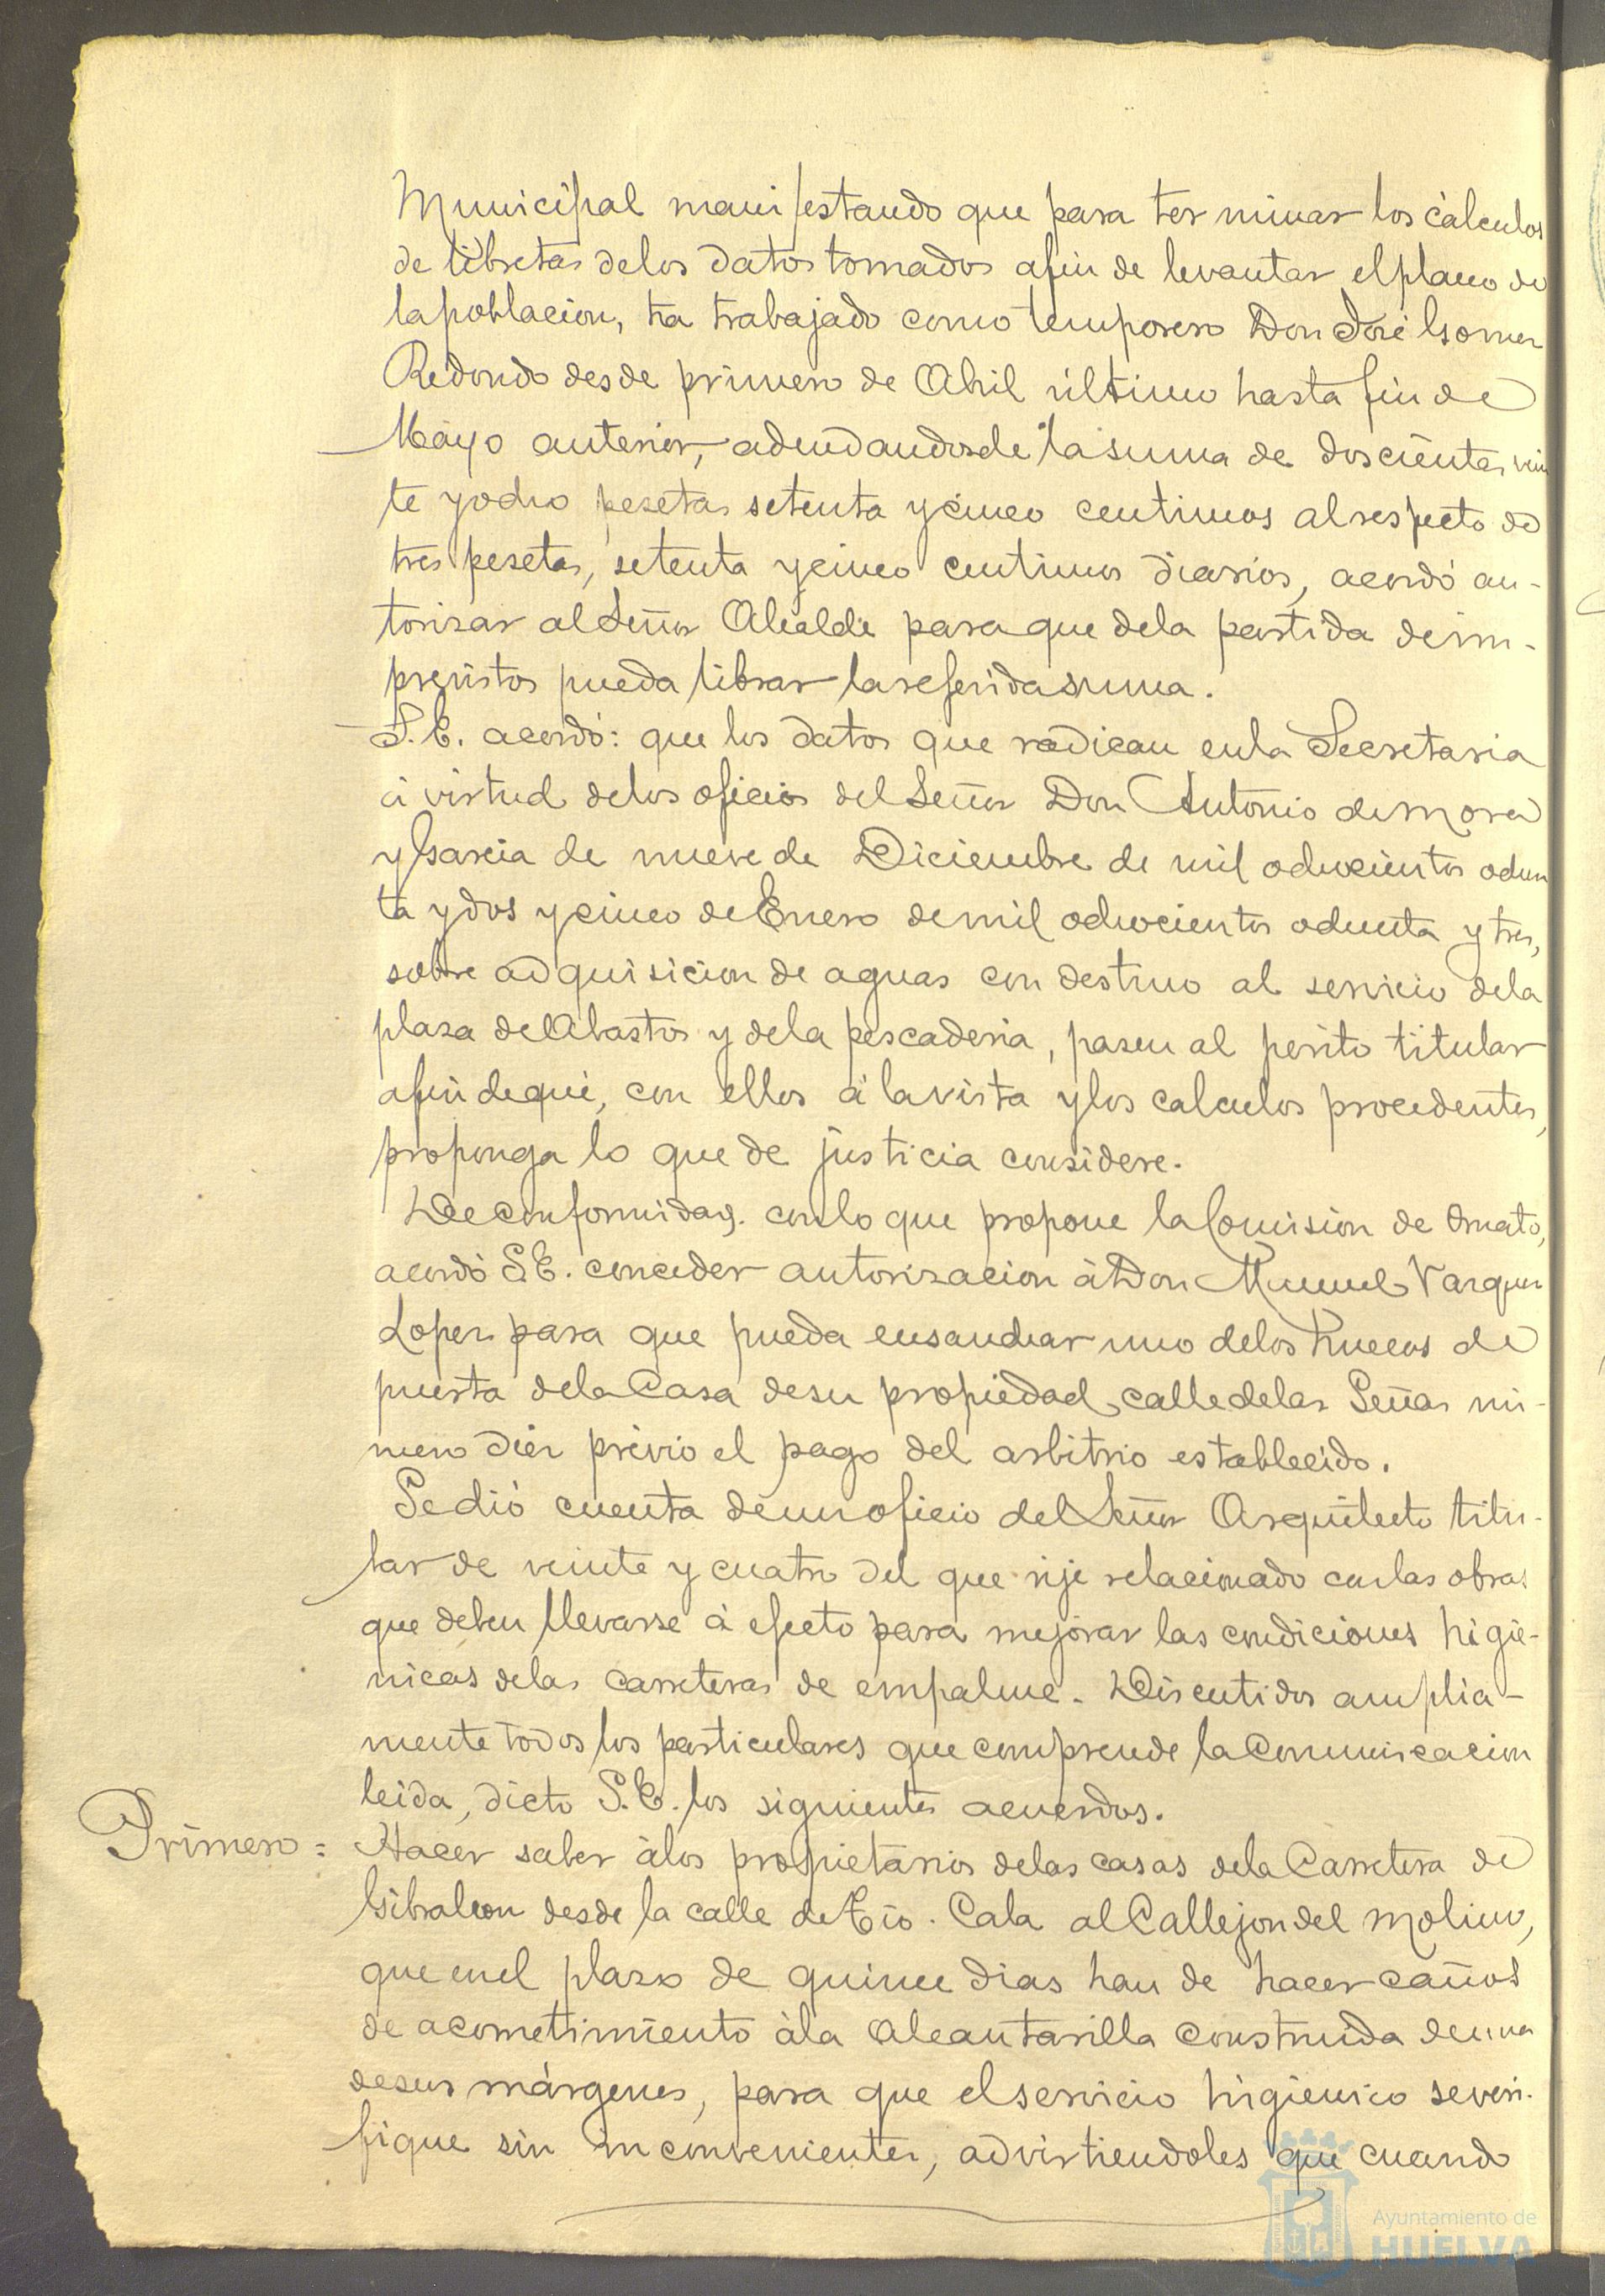 Municipal manifestando que para terminar los cálculos
de libretas de los datos tomados afin de levantar el plano de
la poblacion, ha trabajado como temporero Don José Gomez
Redondo desde primero de Abril último hasta fin de
Mayo anterior, adeudandosele la suma de doscientas vein
te y ocho pesetas setenta y cinco centimos al respecto de
tres pesetas, setenta y cinco centimos diarios, acordó au-
torizar al Señor Alcalde para que de la partida de im-
previstos pueda librar la referida suma.
S.E. acordó: que los datos que radican en la Secretaria
á virtud de los oficios del Señor Don Antonio de Mora
y Garcia de nueve de Diciembre de mil ochocientos ochen
ta y dos y cinco de Enero de mil ochocientos ochenta y tres,
sobre adquisicion de aguas con destino al servicio de la
plaza de Abastos y de la pescaderia, pasen al perito titular
afin de que, con ellos á la vista y los calculos procedentes,
proponga lo que de justicia considere.
De conformidad con lo que propone la Comision de Ornato,
acordó S.E. conceder autorizacion á Don Manuel Vazquez
Lopez para que pueda ensanchar uno de los huecos de
puerta de la Casa de su propiedad calle de las Señas nú-
mero diez previo el pago del arbitrio establecido.
Se dió cuenta de un oficio del Señor Arquitecto titu-
lar de veinte y cuatro del que rije relacionado con las obras
que deben llevarse á efecto para mejorar las condiciones higie-
nicas de las carreteras de empalme. Discutidos amplia-
mente todos los particulares que comprende la Comunicacion
leida, dictó S.E. los siguientes acuerdos.
Primero = Hacer saber á los propietarios de las casas de la Carretera de
Gibraleon desde la calle de Tio Cala al Callejon del Molino,
que en el plazo de quince dias han de hacer caños
de acometimiento á la alcantarilla construida de una
de sus márgenes, para que el servicio higienico se veri-
fique sin inconvenientes, advirtiendoles que cuando
Ayuntamiento de
HUELVA